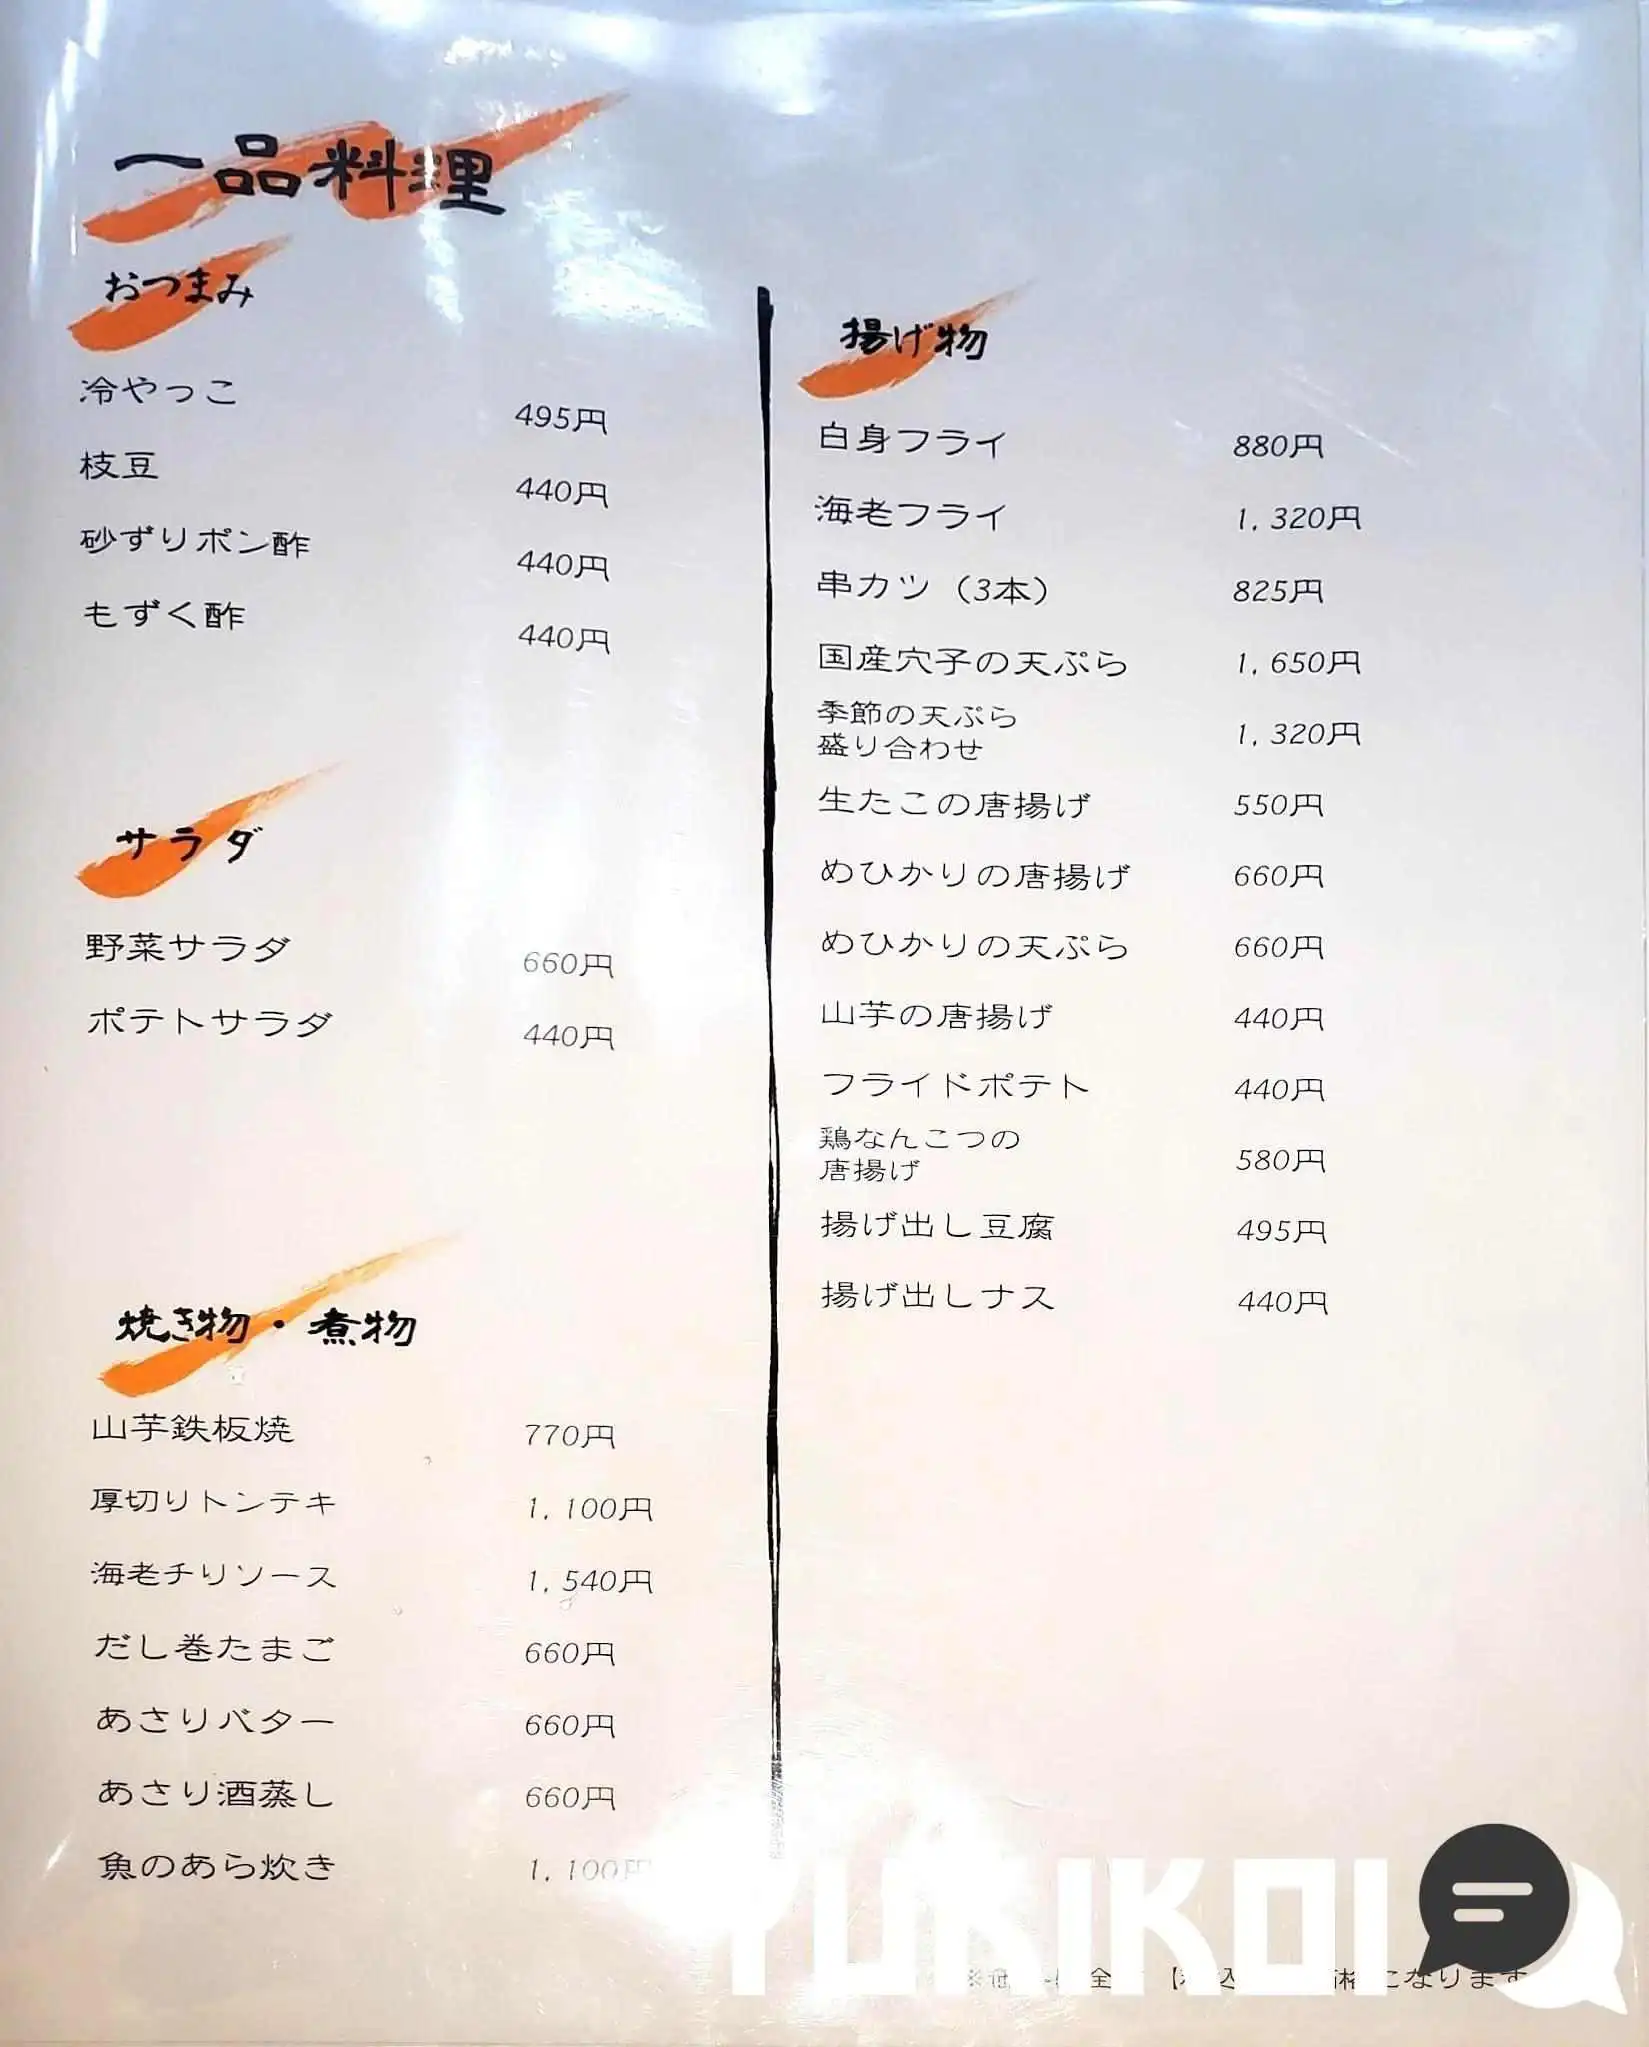 一品料理
おつまみ
冷やっこ 495円
枝豆 440円
砂ずりポン酢 440円
もずく酢 440円
サラダ
野菜サラダ 660円
ポテトサラダ 440円
焼き物・煮物
山芋鉄板焼 770円
厚切りトンテキ 1,100円
海老チリソース 1,540円
だし巻たまご 660円
あさりバター 660円
あさり酒蒸し 660円
魚のあら炊き 1,100円
揚げ物
白身フライ 880円
海老フライ 1,320円
串カツ（3本） 825円
国産穴子の天ぷら 1,650円
季節の天ぷら
盛り合わせ 1,320円
生たこの唐揚げ 550円
めひかりの唐揚げ 660円
めひかりの天ぷら 660円
山芋の唐揚げ 440円
フライドポテト 440円
鶏なんこつの
唐揚げ 580円
揚げ出し豆腐 495円
揚げ出しナス 440円
になります
YURIKOI